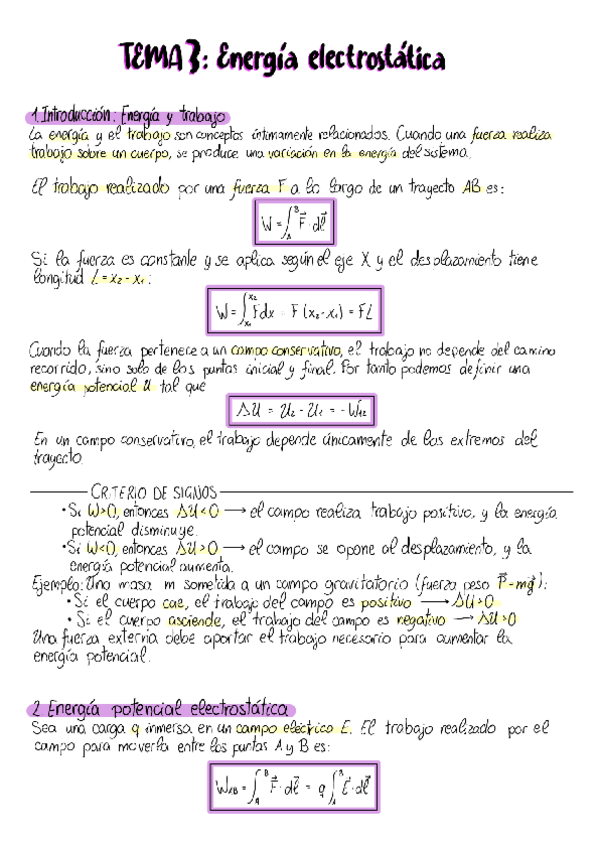 TEMA 3: Energía electrostática
1. Introducción: Energía y trabajo
La energía y el trabajo son conceptos íntimamente relacionados. Cuando una fuerza realiza
trabajo sobre un cuerpo, se produce una variación en la energía del sistema.
El trabajo realizado por una fuerza F a lo largo de un trayecto AB es:
W = ∫_A^B F⃗ · dl⃗
Si la fuerza es constante y se aplica según el eje X y el desplazamiento tiene
longitud L = x₂ - x₁:
W = ∫_{x₁}^{x₂} F dx = F (x₂ - x₁) = FL
Cuando la fuerza pertenece a un campo conservativo, el trabajo no depende del camino
recorrido, sino solo de los puntos inicial y final. Por tanto podemos definir una
energía potencial U tal que
ΔU = U₂ - U₁ = -W₁₂
En un campo conservativo, el trabajo depende únicamente de los extremos del
trayecto.
CRITERIO DE SIGNOS
• Si W>0, entonces ΔU<0 → el campo realiza trabajo positivo, y la energía
potencial disminuye.
• Si W<0, entonces ΔU>0 → el campo se opone al desplazamiento, y la
energía potencial aumenta.
Ejemplo: Una masa m sometida a un campo gravitatorio (fuerza peso P⃗ = mg⃗):
• Si el cuerpo cae, el trabajo del campo es positivo → ΔU>0
• Si el cuerpo asciende, el trabajo del campo es negativo → ΔU>0
Una fuerza externa debe aportar el trabajo necesario para aumentar la
energía potencial.
2. Energía potencial electrostática
Sea una carga q inmersa en un campo eléctrico E. El trabajo realizado por el
campo para moverla entre los puntos A y B es:
W_AB = ∫_A^B F⃗ · dl⃗ = q ∫_A^B E⃗ · dl⃗